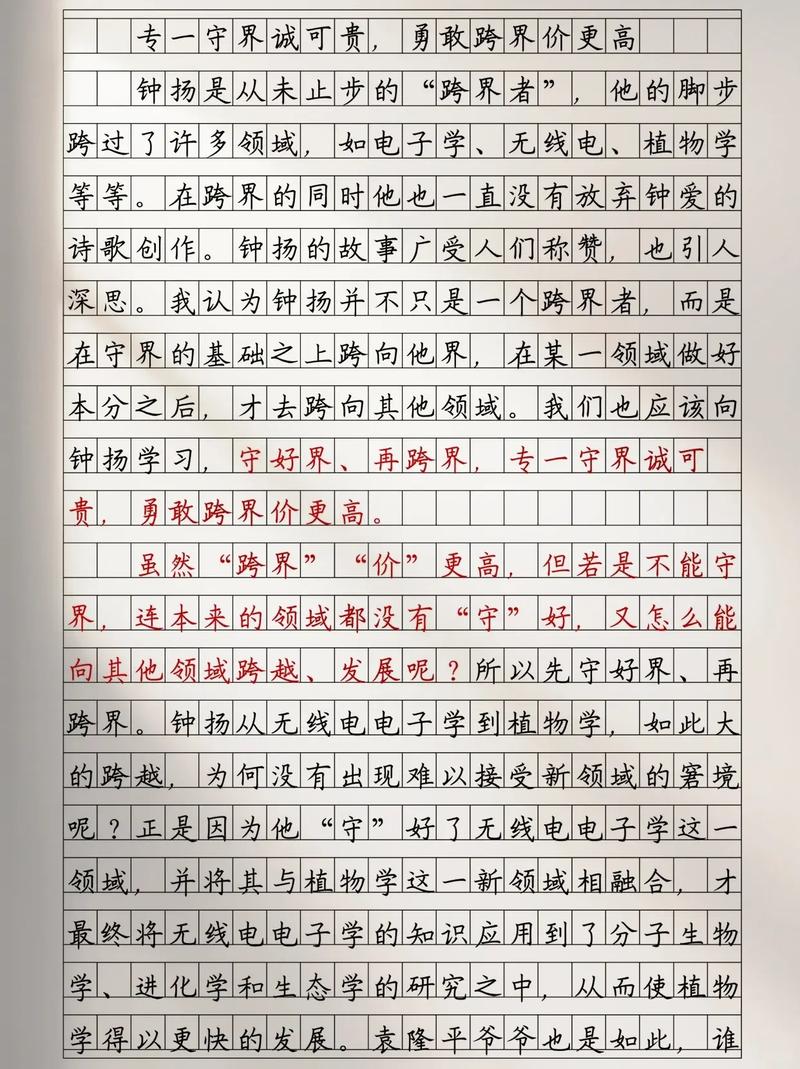 专一守界诚可贵，勇敢跨界价更高
钟扬是从未止步的“跨界者”，他的脚步
跨过了许多领域，如电子学、无线电、植物学
等等。在跨界的同时他也一直没有放弃钟爱的
诗歌创作。钟扬的故事广受人们称赞，也引人
深思。我认为钟扬并不只是一个跨界者，而是
在守界的基础之上跨向他界，在某一领域做好
本分之后，才去跨向其他领域。我们也应该向
钟扬学习，守好界、再跨界，专一守界诚可
贵，勇敢跨界价更高。
虽然“跨界”“价”更高，但若是不能守
界，连本来的领域都没有“守”好，又怎么能
向其他领域跨越、发展呢？所以先守好界、再
跨界。钟扬从无线电电子学到植物学，如此大
的跨越，为何没有出现难以接受新领域的窘境
呢？正是因为他“守”好了无线电电子学这一
领域，并将其与植物学这一新领域相融合，才
最终将无线电电子学的知识应用到了分子生物
学、进化学和生态学的研究之中，从而使植物
学得以更快的发展。袁隆平爷爷也是如此，谁